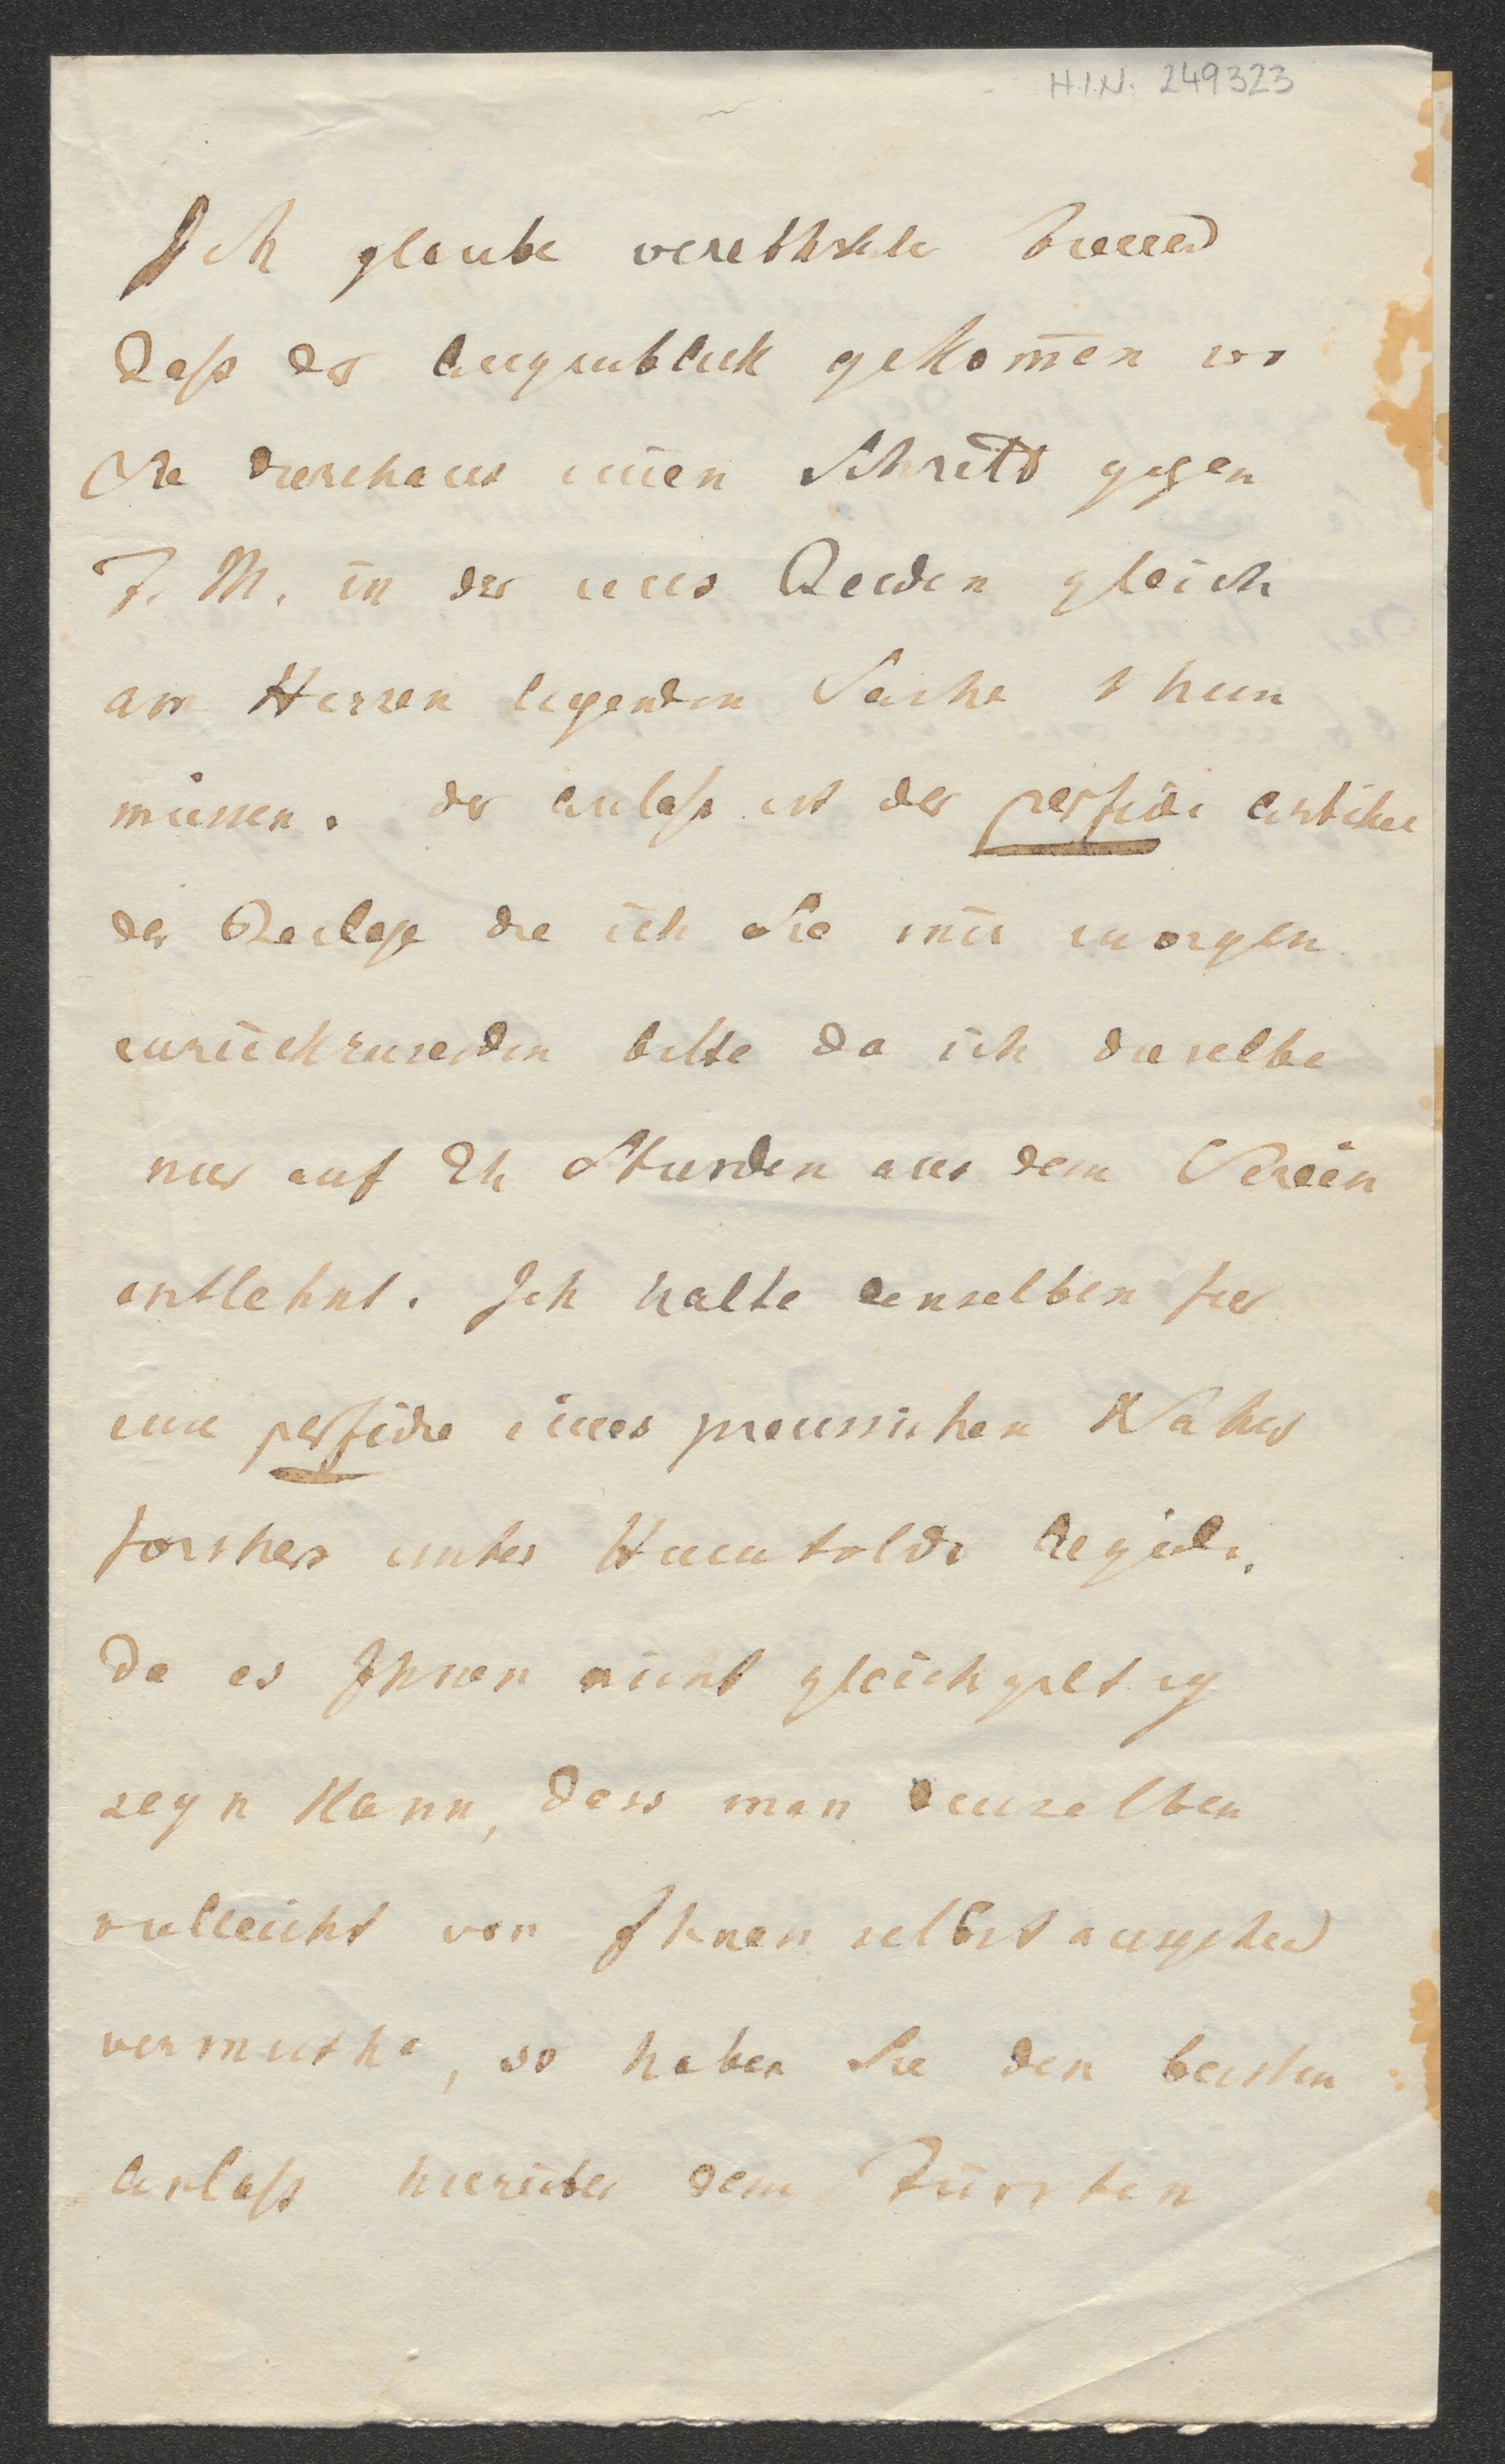 H.I.N. 249323
Ich glaube verehrtester Freund
daß der Augenblick gekom̄en wo
Sie durchaus einen Schritt gegen
F. M. in der uns Beiden gleich
am Herzen liegenden Sache thun
müssen. Der Anlaß ist der perfide Artikel
der Beilage die ich Sie mir morgen
zurückzusenden bitte da ich dieselbe
nur auf 24 Stunden aus dem Verein
entlehnt. Ich halte denselben für
eine perfidie eines preussischen Natur
forschers unter Humboldts Aegide.
Da es Ihnen nicht gleichgiltig
seyn kann, dass man denselben
vielleicht von Ihnen selbst ausgehend
vermuthe, so haben Sie den besten
Anlaß hierüber dem Fürsten